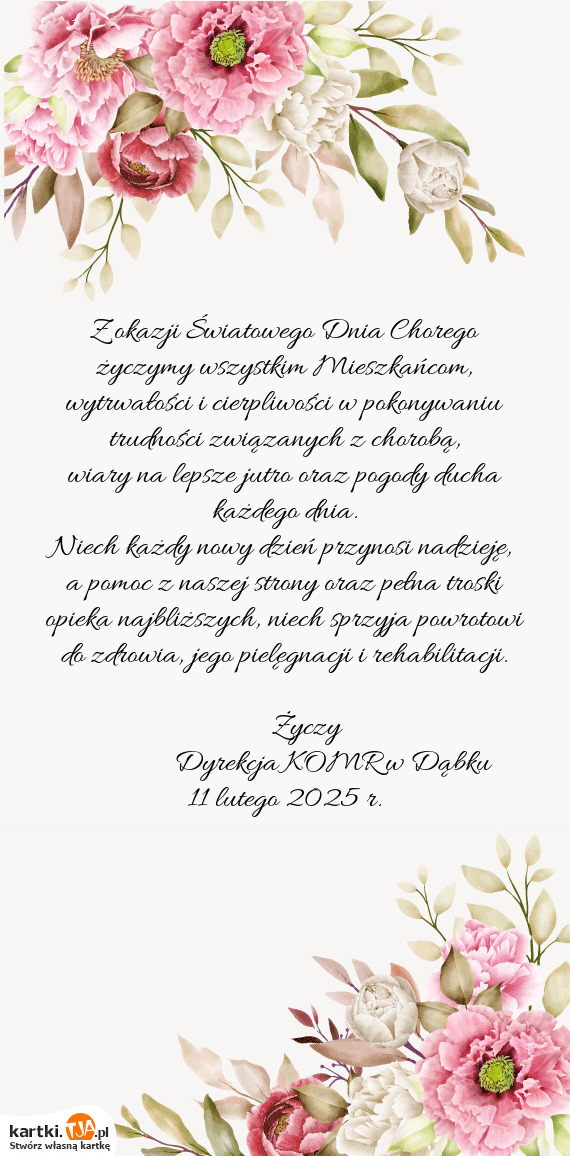 Z okazji Światowego Dnia Chorego
życzymy wszystkim Mieszkańcom,
wytrwałości i cierpliwości w pokonywaniu
trudności związanych z chorobą,
wiary na lepsze jutro oraz pogody ducha
każdego dnia.
Niech każdy nowy dzień przynosi nadzieję,
a pomoc z naszej strony oraz pełna troski
opieka najbliższych, niech sprzyja powrotowi
do zdrowia, jego pielęgnacji i rehabilitacji.
Życzy
Dyrekcja KOMR w Dąbku
11 lutego 2025 r.
kartki.TJA.pl
Stwórz własną kartkę